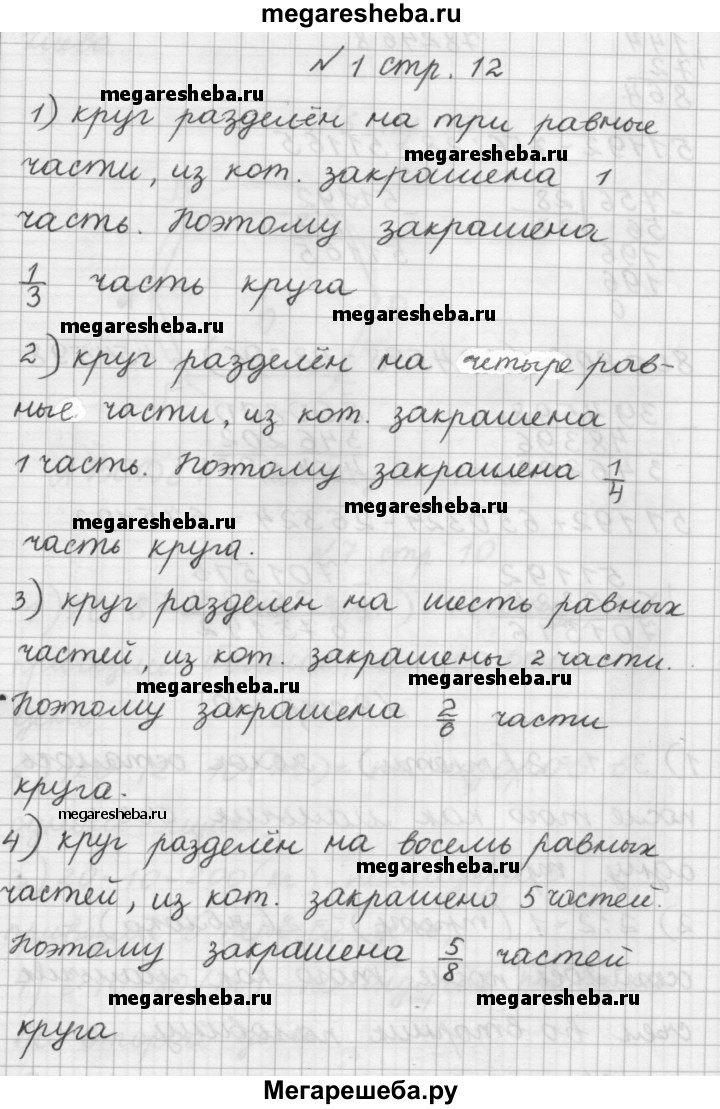 megaresheba.ru
№ 1 стр. 12
megaresheba.ru
1) круг разделён на три равные
megaresheba.ru
части, из кот. закрашена 1
часть. Поэтому закрашена
1/3 часть круга
megaresheba.ru megaresheba.ru
2) круг разделён на четыре рав-
ные части, из кот. закрашена
1 часть. Поэтому закрашена 1/4
megaresheba.ru megaresheba.ru
часть круга.
3) круг разделен на шесть равных
частей, из кот. закрашены 2 части.
megaresheba.ru megaresheba.ru
Поэтому закрашена 2/6 части
круга.
megaresheba.ru
4) круг разделён на восемь равных
megaresheba.ru
частей, из кот. закрашено 5 частей.
Поэтому закрашена 5/8 частей
megaresheba.ru megaresheba.ru
круга
Мегарешеба.ру